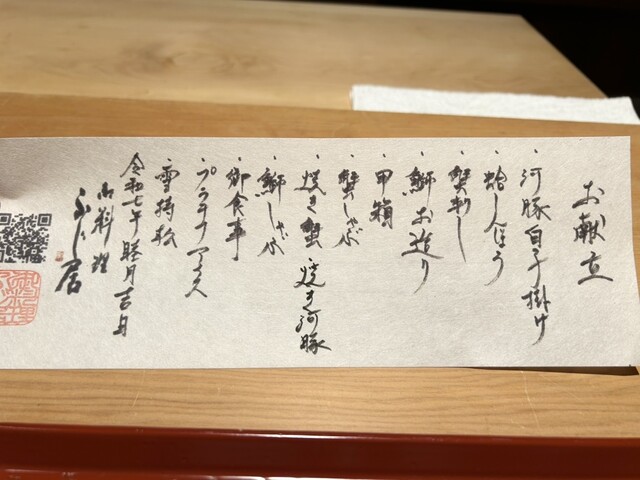 お献立
・河豚白子掛け
・蛤しんじょう
・蟹刺し
・鰤お造り
・甲箱
・蟹しゃぶ
・焼き蟹 ・焼き河豚
・鰤しゃぶ
・御食事
・プラチナアイス
雪持松
令和七年 睦月吉日
御料理
ふじ居